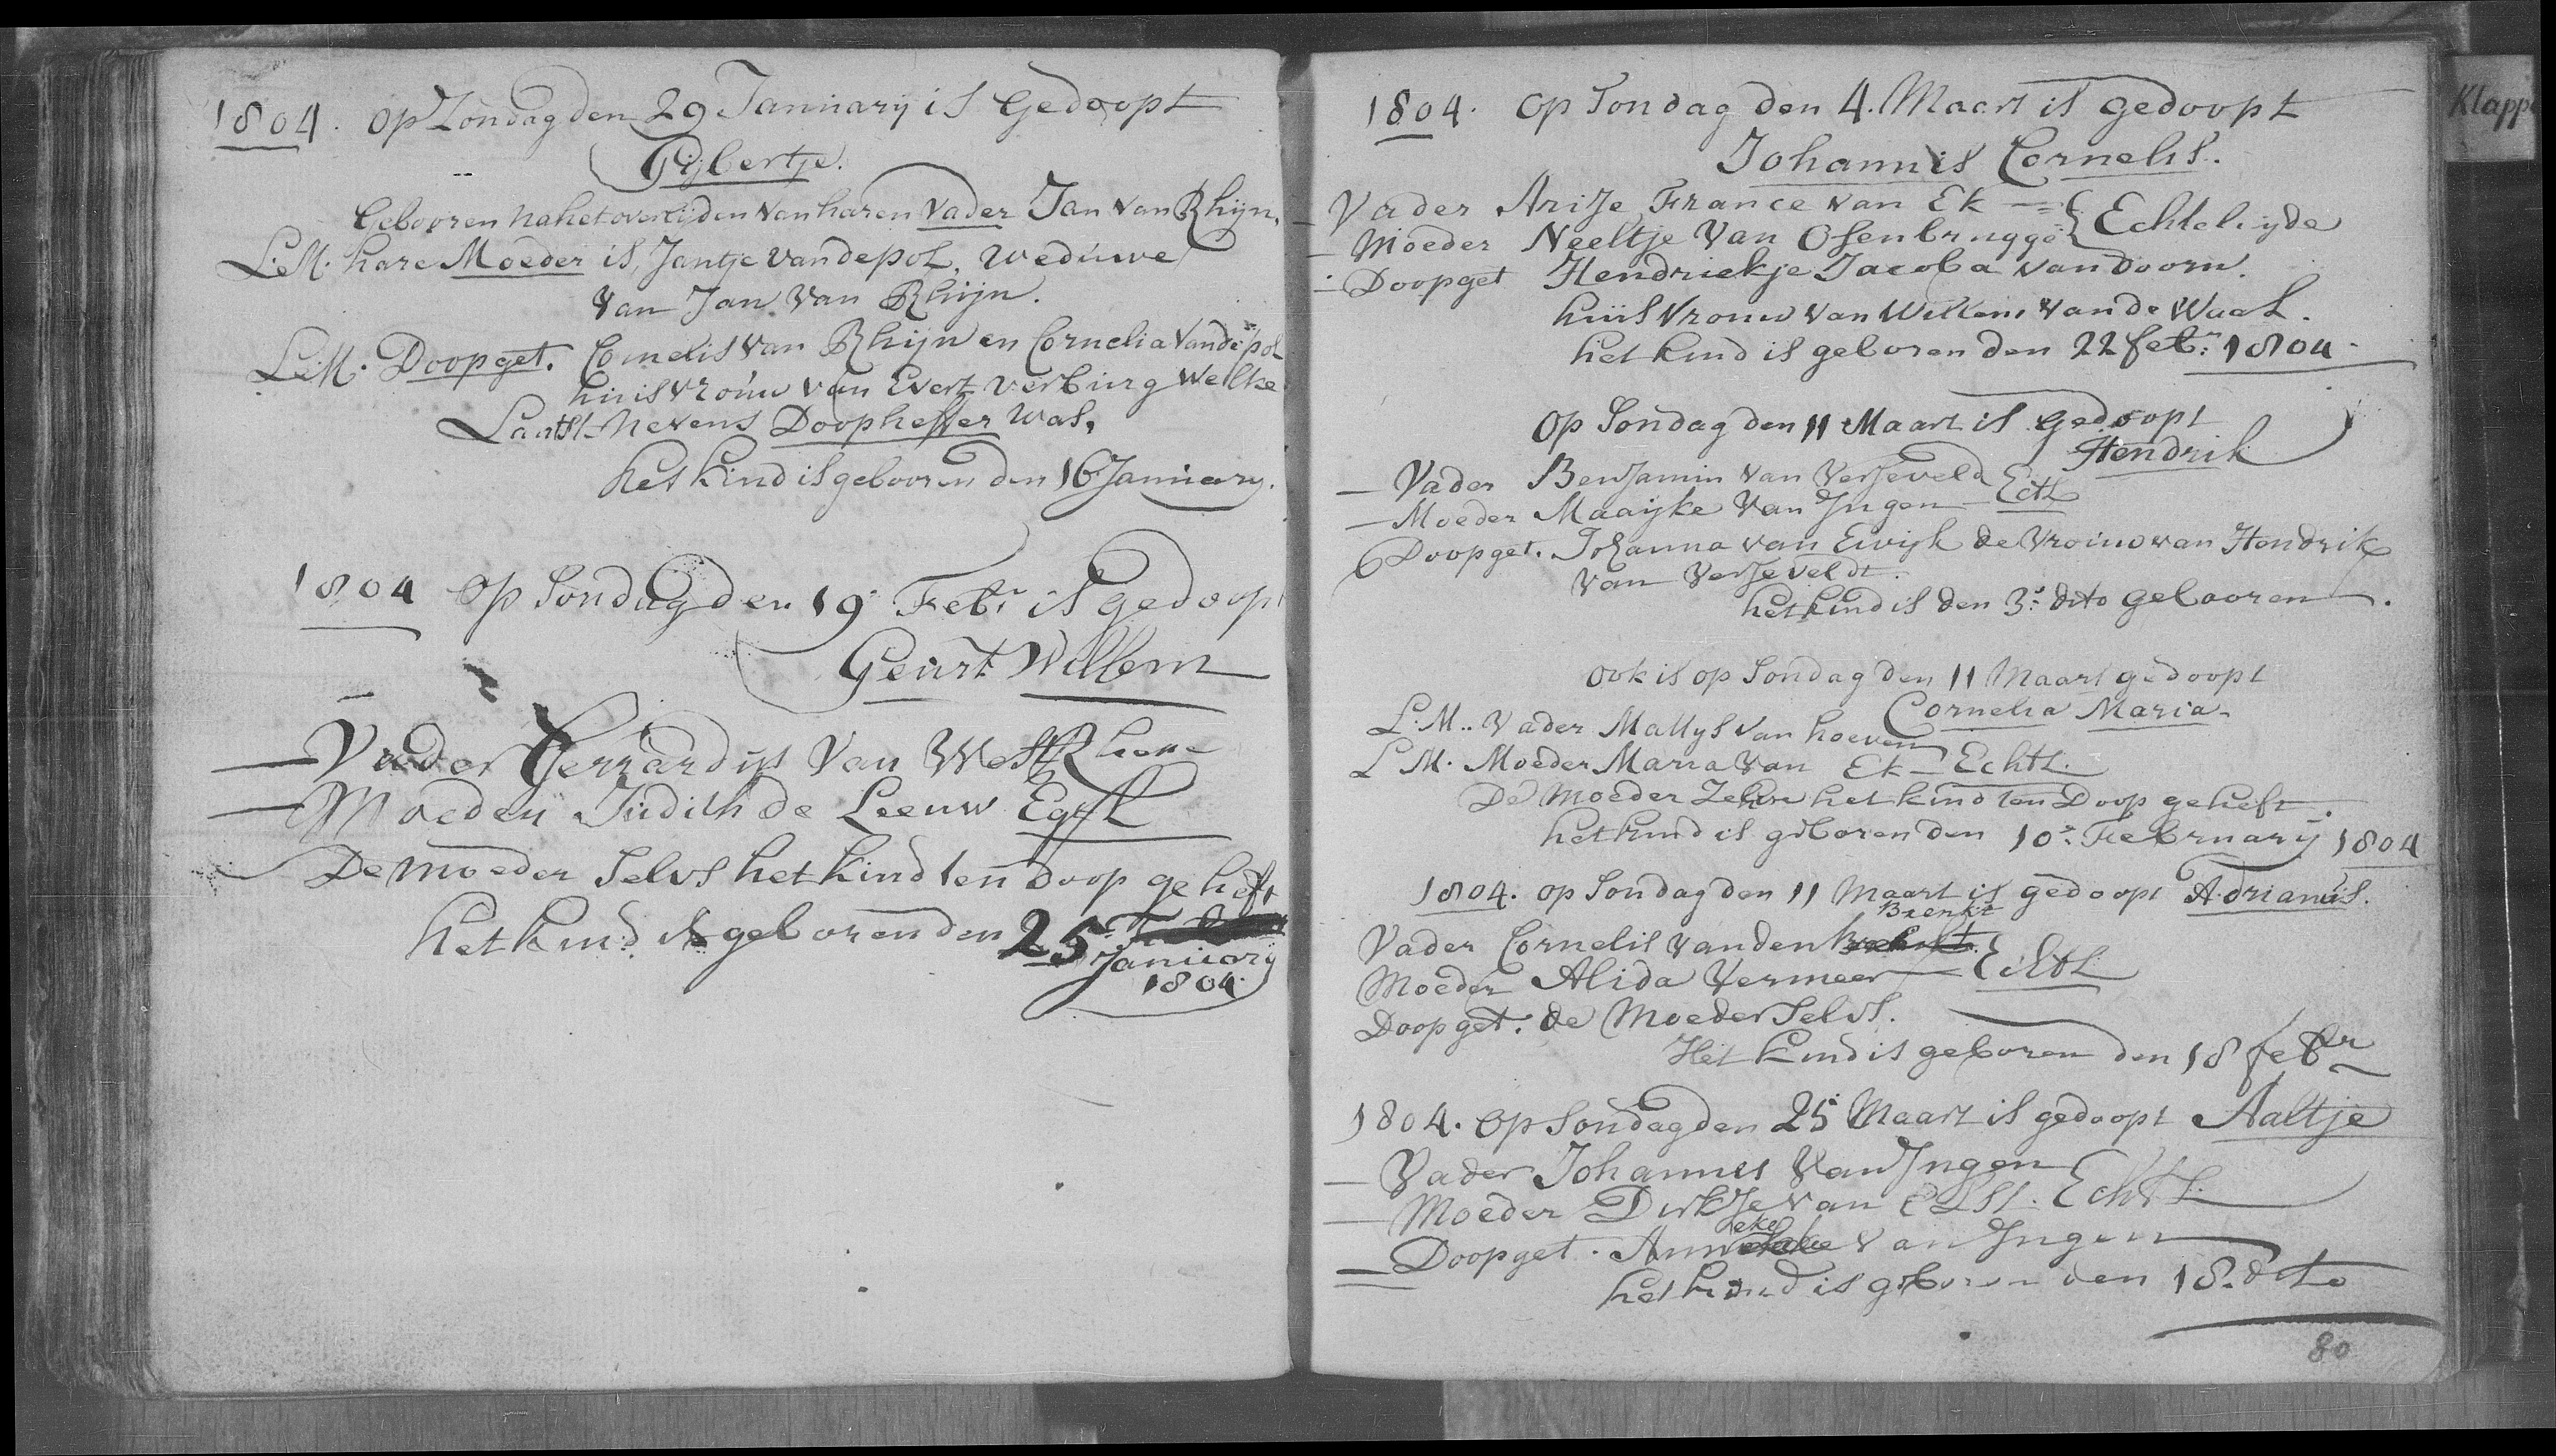 1804. op Zondag den 29 January is Gedoopt
Gijbertje.
Gebooren na het overlijden van haren Vader Jan van Rhijn,
L:M. hare Moeder is, Jantje van de pol, weduwe
van Jan van Rhijn.
L:M. Doopget. Cornelis van Rhijn en Cornelia van de pol
huisvrouw van Evert verburg welke
Laatst nevens Doopheffer was,
het kind is gebooren den 16 January.
1804 op Sondag den 19 Febr is gedoopt
Geurt Willem
Vader Gerrardus van West Rhene
Moeder Judith de Leeuw Egtl
De moeder Selvs het kind ten doop geheft
het kind is geboren den 25
January
1804.
1804. op Sondag den 4. Maart is gedoopt
Johannis Cornelis.
Vader Arisje France van Ek
Moeder Neeltje van Osenbrugge Echteliyde
Doopget Hendriekje Jacoba van doorn.
huisvrouw van Willem van de Waal.
het kind is geboren den 22 febr: 1804
Op Sondag den 11 Maart is Gedoopt
Hendrik
Vader Benjamin van Verseveld
Moeder Maayke van Jngen Ectl
Doopget. Johanna van Ewijk de vrouw van Hendrik
van Verseveldt.
het kind is den 3: dito gebooren.
ook is op Sondag den 11 Maart gedoopt
Cornelia Maria
L:M.. Vader Mattys van hoeven
L M. Moeder Maria van Ek Echtl.
De Moeder Zelve het kind ten Doop geheft.
het kind is geboren den 10: February 1804
1804. op Sondag den 11 Maart is gedoopt Adrianus.
Brenkt
Vader Cornelis van den
Moeder Alida Vermeer Echtl
Doopget. de Moeder Selvs.
Het kind is geboren den 18 febr
1804. Op Sondag den 25 Maart is gedoopt Aaltje
Vader Johannes van Jngen
Moeder Dirkje van Elst. Echtl.
eke
Doopget. Ann van Jngen
het kind is geboren den 18. dito
80
Klapp